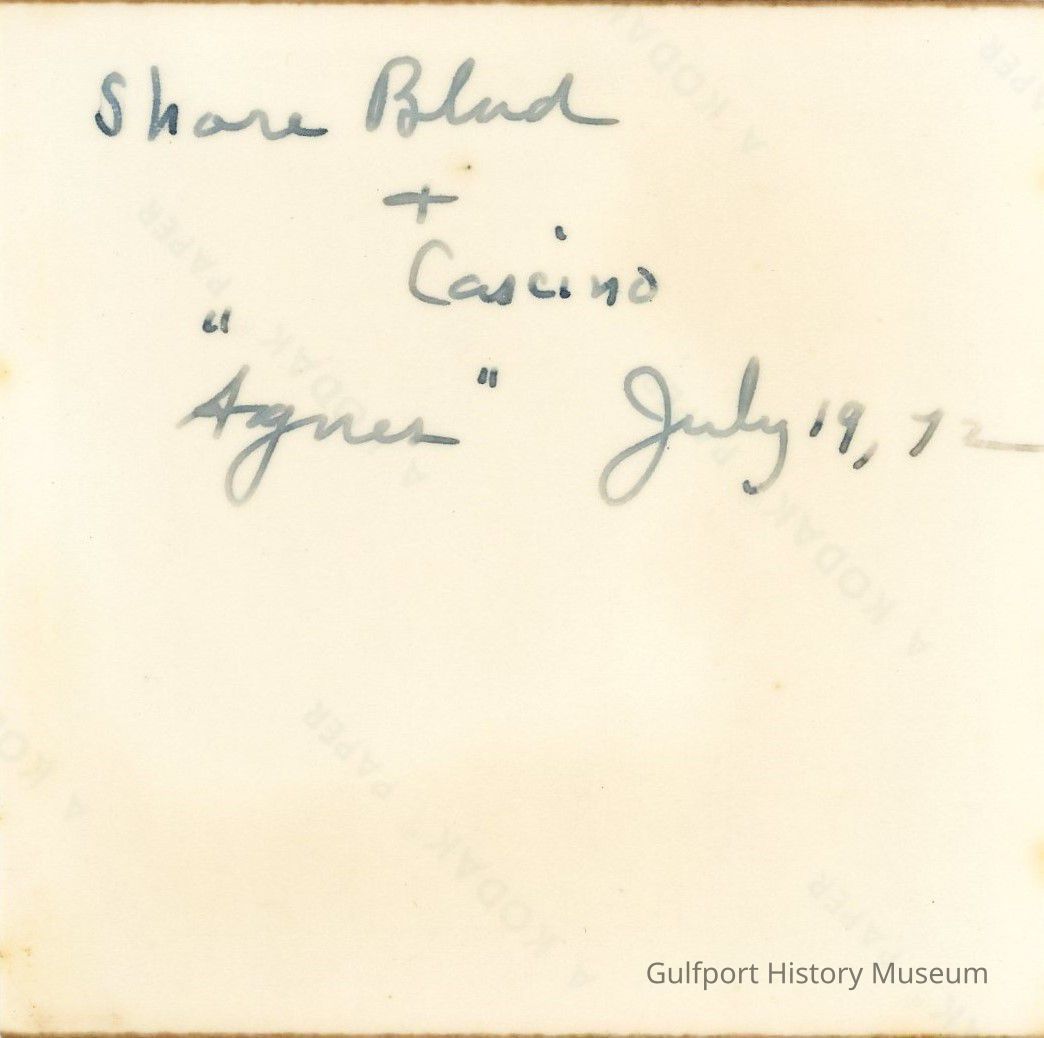 Shore Blvd
+
Cascino
"Agnes" July 19, 72
A KODAK PAPER
A KODAK PAPER
A KODAK PAPER
A KODAK PAPER
Gulfport History Museum